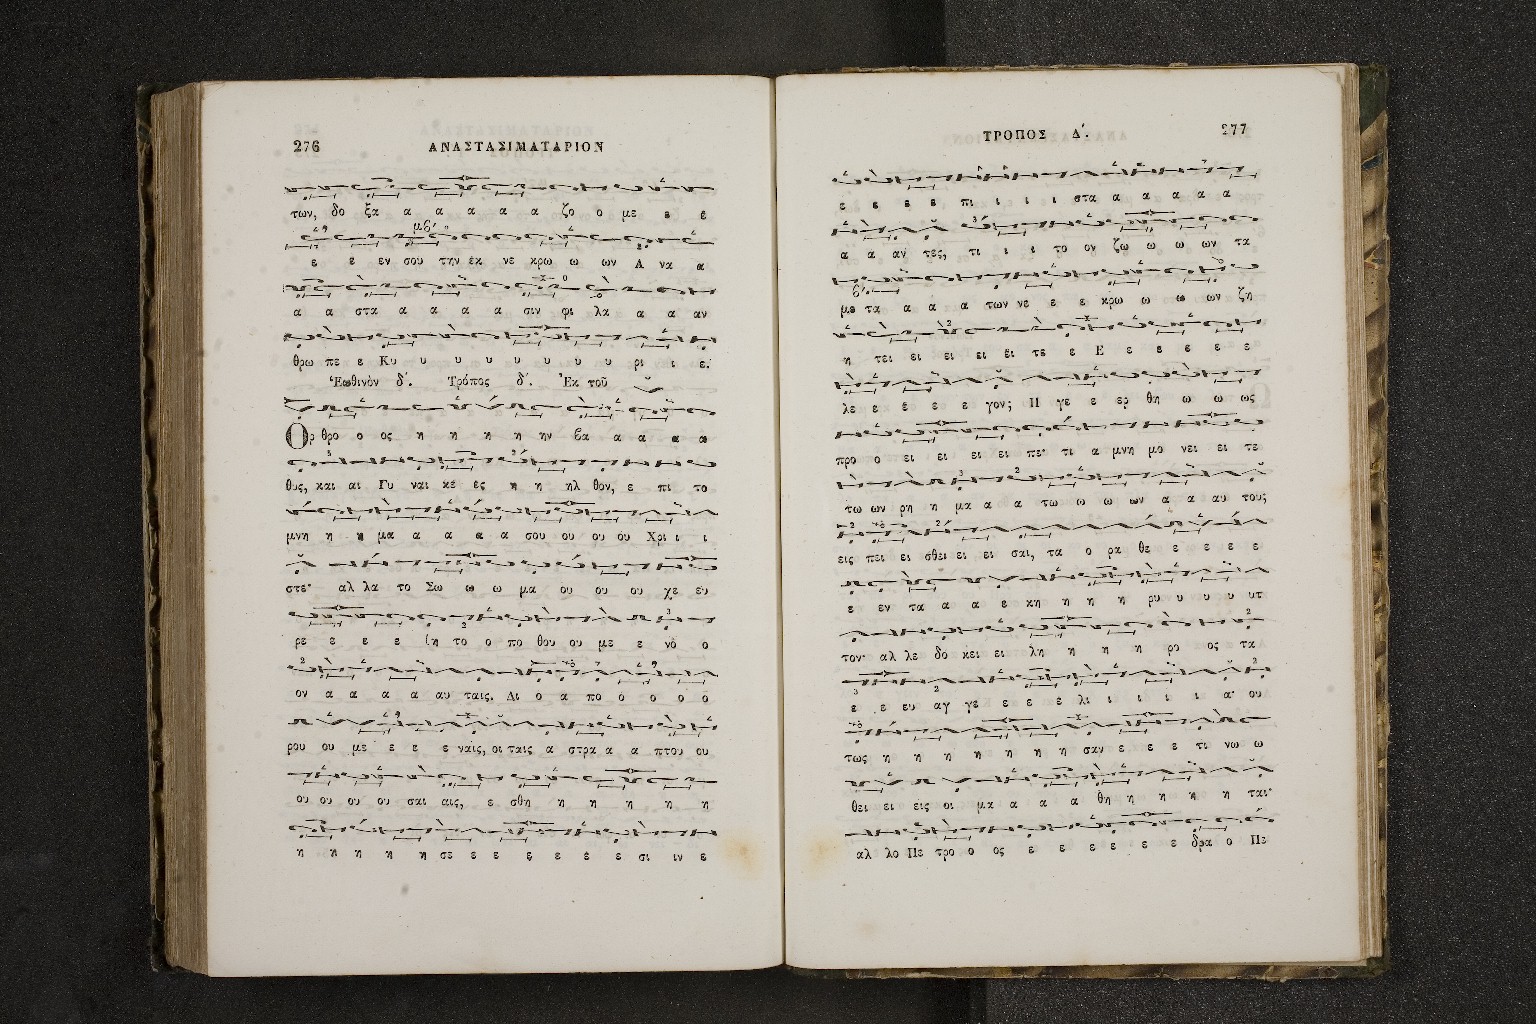 276 ΑΝΑΣΤΑΣΙΜΑΤΑΡΙΟΝ
των, δο ξα α α α α α ζο ο με ε ε
ε ε εν σου την έκ νε κρω ω ων Α να α
α α στα α α α α σιν φι λα α α αν
θρω πε ε Κυ υ υ υ υ υ υ υ ρι ι ε.
Ἑωθινὸν δ΄. Τρόπος δ΄. Ἐκ τοῦ
Ορ θρο ο ος η η η η ην βα α α α α
θυς, και αι Γυ ναι κε ες η η ηλ θον, ε πι το
μνη η η μα α α α α σου ου ου ου Χρι ι ι
στε· αλ λα το Σω ω ω μα ου ου ου χε ευ
ρε ε ε ε θη το ο πο θου ου με ε νο ο
ον α α α α αυ ταις. Δι ο α πο ο ο ο ο
ρου ου με ε ε ε ναις, οι ταις α στρα α α πτου ου
ου ου ου ου σαι αις, ε σθη η η η η η
η η η η η σε ε ε ε ε ε ε σι ιν ε
ΤΡΟΠΟΣ Δ΄. 277
ε ε ε ε πι ι ι ι στα α α α α α
α α αν τες, τι ι ι το ον ζω ω ω ων τα
με τα α α α των νε ε ε κρω ω ω ων ζη
η τει ει ει ει ει τε ε Ε ε ε ε ε ε
λε ε ε ε ε ε γον; Η γε ε ερ θη ω ω ως
προ ο ει ει ει ει πε· τι α μνη μο νει ει τε
τω ων ρη η μα α α τω ω ω ων α α αυ τους
εις πει ει σθει ει ει σαι, τα ο ρα θε ε ε ε ε
ε εν τα α α ε κη η η η ρυ υ υ υ υτ
τον· αλ λε δο κει ει λη η η η ρο ος τα
ε ε ευ αγ γε ε ε ε λι ι ι ι ι α· ου
τως η η η η η η η σαν ε ε ε τι νω ω
θει ει εις οι μα α α α θη η η η η ται·
αλ λο Πε τρο ο ος ε ε ε ε ε ε ε δρα ο Πε